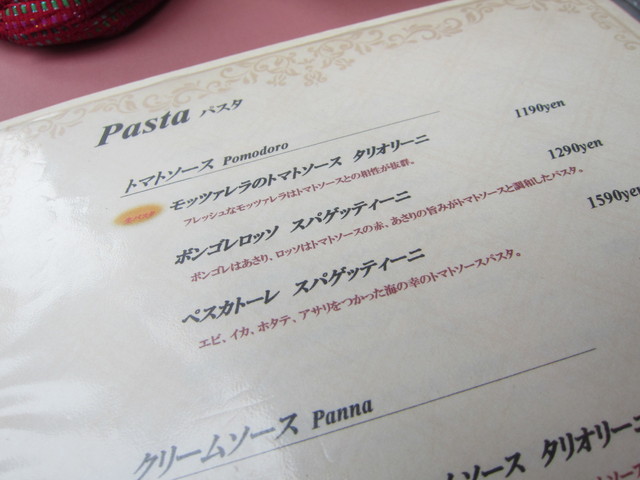 Pasta パスタ
トマトソース Pomodoro
モッツァレラのトマトソース タリオリーニ 1190yen
フレッシュなモッツァレラはトマトソースとの相性が抜群。
ボンゴレロッソ スパゲッティーニ 1290yen
ボンゴレはあさり、ロッソはトマトソースの赤、あさりの旨みがトマトソースと調和したパスタ。
ペスカトーレ スパゲッティーニ 1590yen
エビ、イカ、ホタテ、アサリをつかった海の幸のトマトソースパスタ。
クリームソース Panna
ソース タリオリーニ